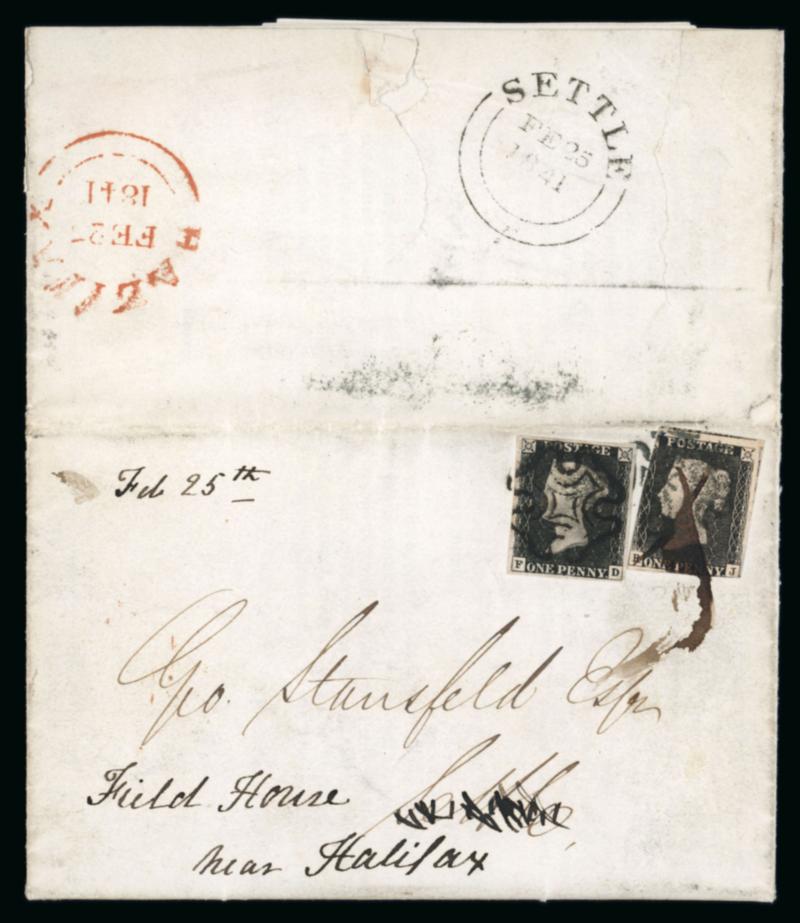 SETTLE
FE 25
1841
1841
Feb 25th
POSTAGE
F ONE PENNY D
POSTAGE
ONE PENNY J
Geo. Stansfeld Esqr
Settle
Field House
near Halifax